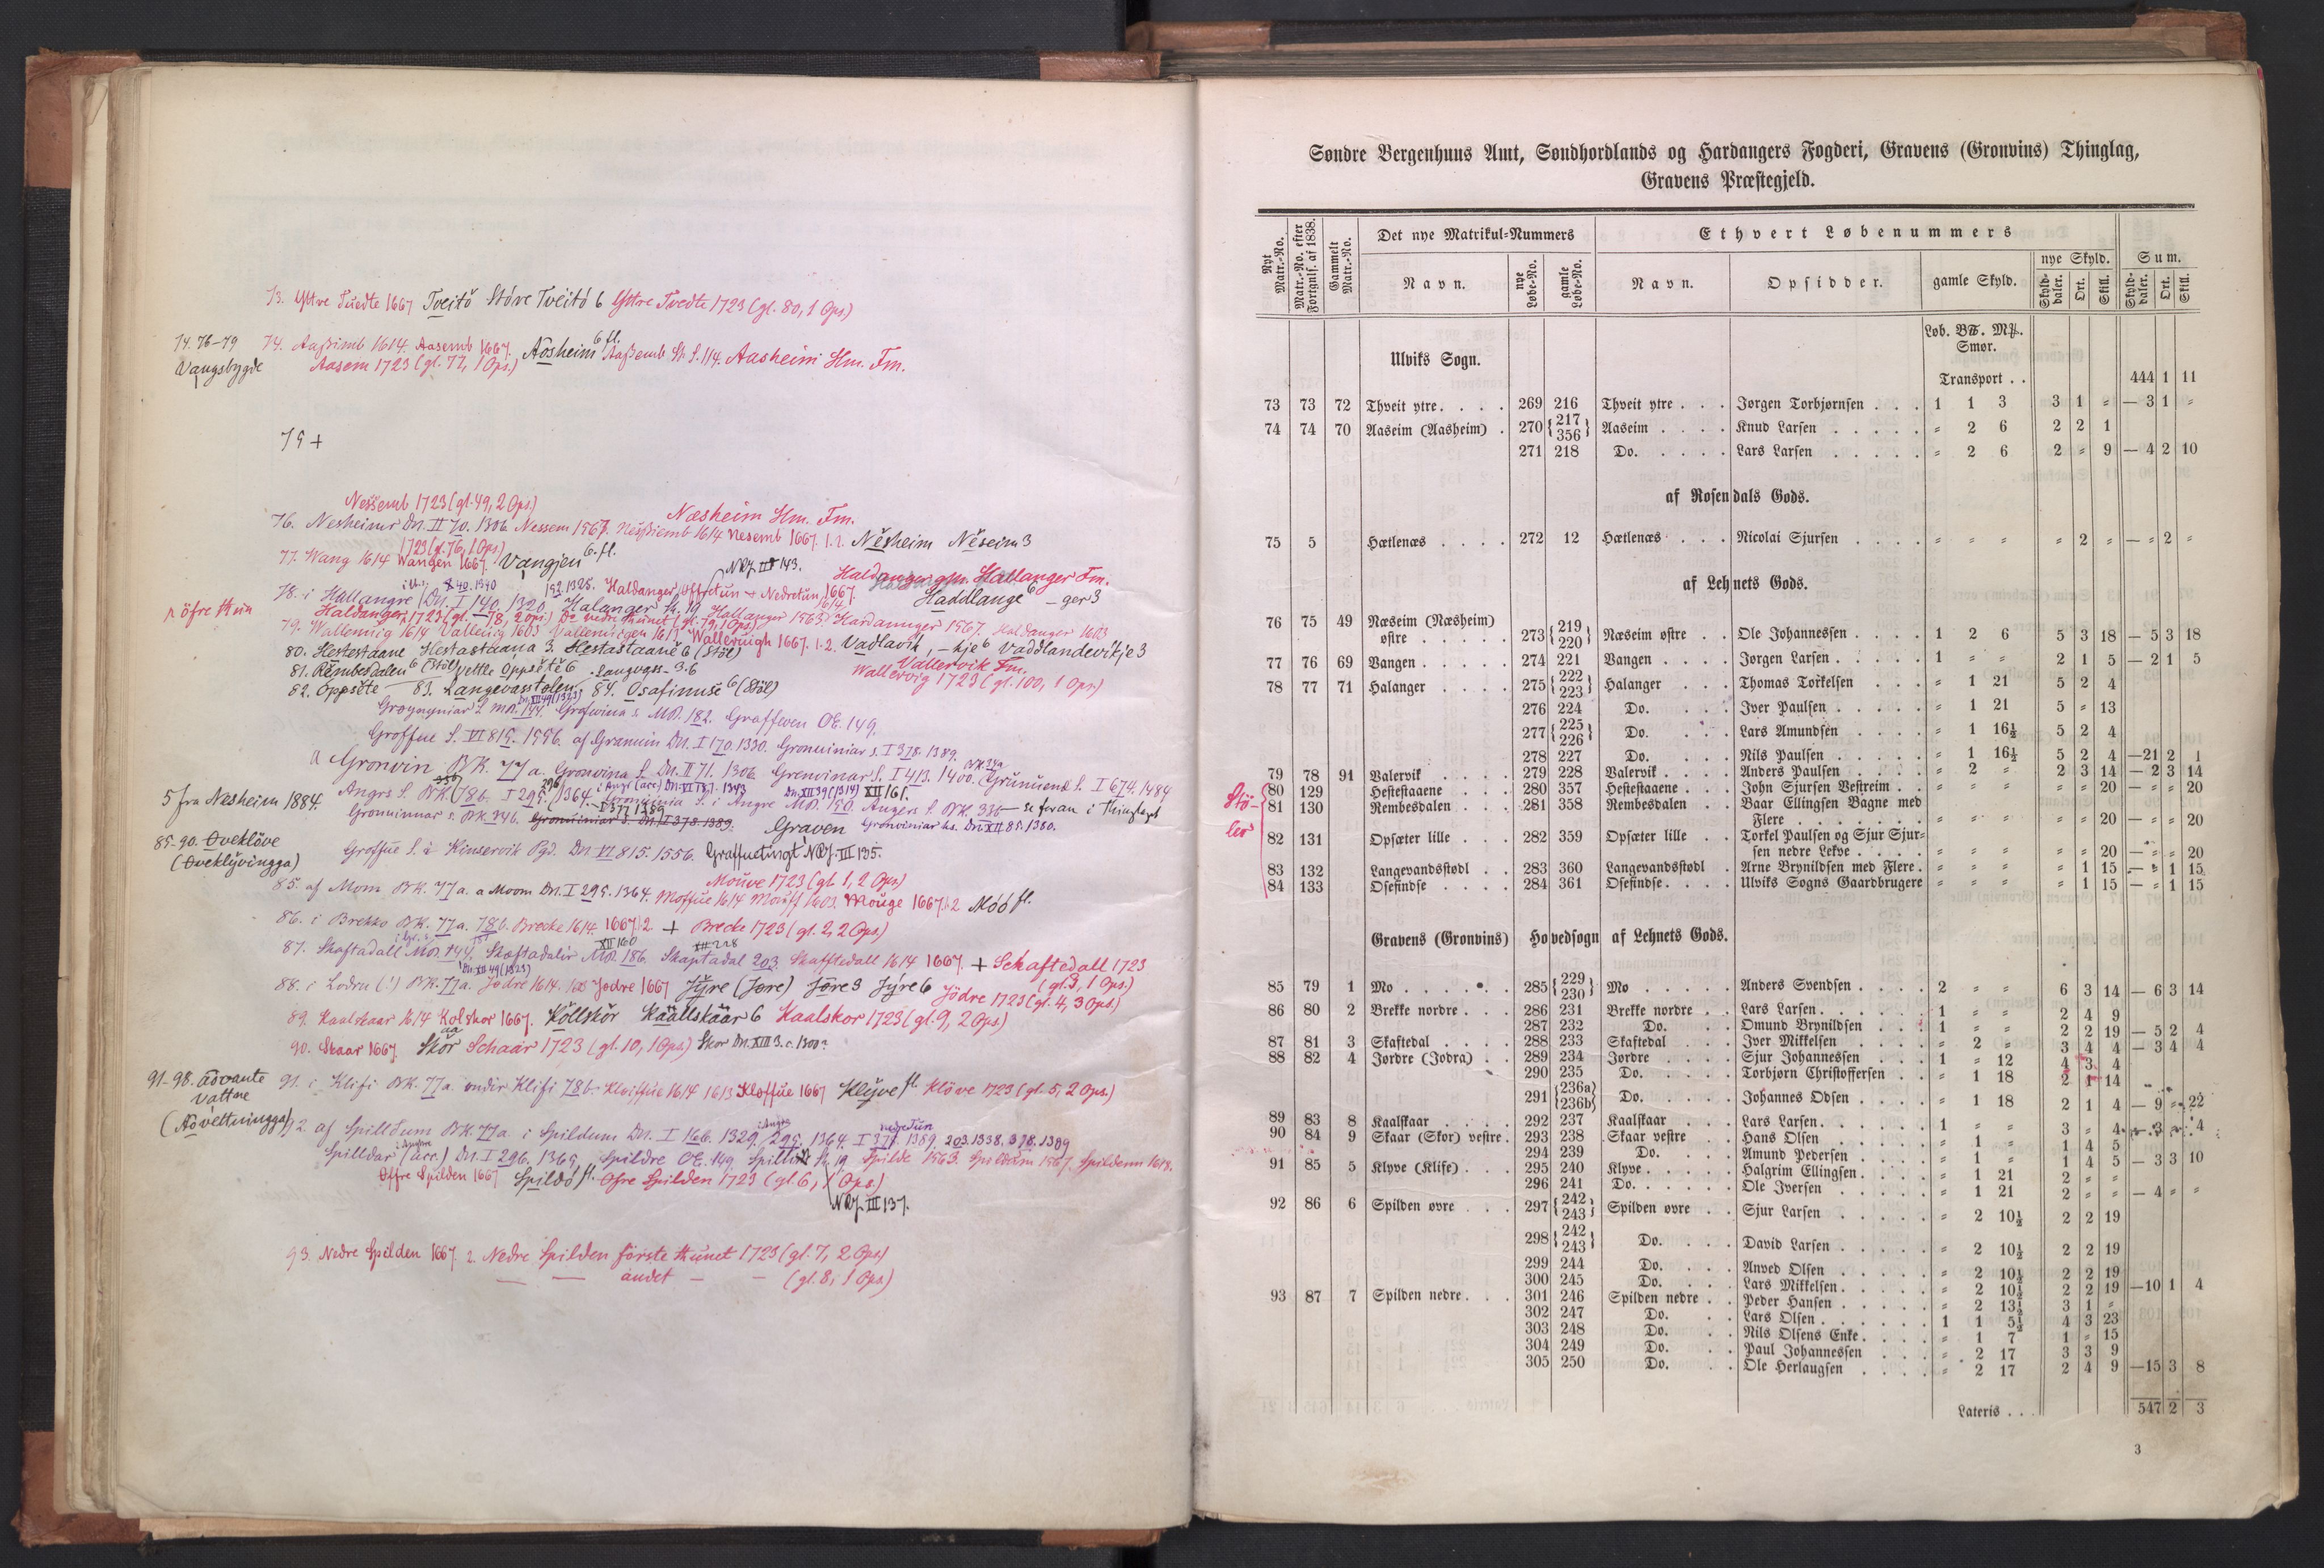 73. Yttre Tuedte 1667 Tveitó Stóre Tveitó 6 Yttre Tvedte 1723 (gl. 80, 1 Ops.)
74. 76-79
Vangsbygde
74. Aaßimb 1614. Aasemb 1667. Aösheim 6 fl. Aaßemb St. S. 114. Aasheim Hm. Fm.
Aasem 1723 (gl. 77, 1 Ops.)
75 +
Nessemb 1723 (gl. 49, 2 Ops.)
Næsheim Hm. Fm.
76. Nesheimur Dn. II 70. 1306. Nessem 1567. Neßiemb 1614 Nesemb 1667. 1.2. Nesheim Neseim 3
1723 (gl. 76, 1 Ops.)
77. Wang 1614 Wangen 1667. Vangjen 6. fl.
NRJ. III 143.
Haldanger gm. Hallanger Fm.
78. i Hallangre Dn. I 140. 1320. Halanger St. 19 Haldanger, Offretun + Nedretun 1667. Haddlange 6 - ger 3
p öfre thun
Haldanger 1723 (gl. 78, 2 Ops.) Do nedre thunet (gl. 79, 1 Ops.) Hallanger 1563. Hardannger 1567. Haldanger 1603
79. Wallennig 1614 Valleuig 1603 Wallernigen 1611 Walleruigh 1667. 1.2. Vadlavik, -kje 6 Vaddlandevikje 3
80. Hestestaane Hestastaana 3. Hestastaane 6 (Stöl)
Vallervik Fm.
81. Rembesdalen 6 (Stöl) vetle Oppsete 6 . Langvass- 3.6
Wallervig 1723 (gl. 100, 1 Ops.)
82. Oppsete 83. Langevasstolen, 84. Osafinnse 6 (Stöl)
Dn. XII 49 (1323)
Grøynginiar S. MR. 144. Grofwina s. MR. 182. Graffwen OE. 149.
Groffue S. VI 815. 1556. af Granuin Dn. I 170. 1330. Gronuiniar s. I 378. 1389.
a Gronvin BK. 77 a. Gronvina S. Dn. II 71. 1306. Grenvinar S. I 413. 1400. Grünuend S. I 674. 1484
5 fra Nesheim 1884.
Angrs S. BK. 78 b. I 295. 1364. S. i Angre MR. 150. Angers S. BK. 33 b - se foran i Thinglaget
Gronuinnar s. BK. 34 b. Gronuiniar S. Dn. I 378. 1389. Graven Gronviniar hs. Dn. XII 85. 1380.
85-90. Øveklöve
(Øveklÿvingga)
Groffue S. i Kinservik Pgd. Dn. VI 815. 1556. Graffuetingt NRJ. III 135.
Mouve 1723 (gl. 1, 2 Ops.)
85. af Mom BK. 77 a. a Moom Dn. I 295. 1364. Moffue 1614 Mouff 1603. Mouge 1667. 1.2 Móó fl.
86. i Brekko BK. 77 a. 78 b. Brecke 1614. 1667. 1.2. + Brecke 1723 (gl. 2, 2 Ops.)
87. Skaftadall MR. 144. Skæftadalir MR. 186. Skaptadal 203. Skafftedall 1614 1667. + Schaftedall 1723
Dn. XII 49 (1323)
(gl. 3, 1 Ops.)
88. i Lodru (!) BK. 77 a. Jodre 1614. Jodre 1667 Jÿre (Jøre) Jøre 3 Jýre 6 Jödre 1723 (gl. 4, 3 Ops.)
89. Kaalskaar 1614 Kolskor 1667. Köllskör Käällskäär 6 Kaalskor 1723 (gl. 9, 2 Ops.)
90. Skaar 1667. Skör Schaar 1723 (gl. 10, 1 Ops.) Skor Dn. XIII 3. c. 1300?
91-98. Aövante
Vattne
(Aövettningga)
91. i Klifi BK. 77 a. undir Klifi 78 b. Kleiffue 1614 1613 Kløffue 1667 Klÿve fl. Klöve 1723 (gl. 5, 2 Ops.)
92. af Spilldum BK. 77 a. i Spildum Dn. I 166. 1329. 295. 1364. I 377. 1389. 203. 1338. 378. 1389
Spilldar (acc.) Dn. I 296. 1365. Spildre OE. 149. St. 19. Spilde 1563. Spildum 1567. Spildenn 1618.
Øffre Spilden 1667 Spildó fl. Øfre Spilden 1723 (gl. 6, 1 Ops.)
NRJ. III 137.
93. Nedre Spilden 1667. 2. Nedre Spilden förste thunet 1723 (gl. 7, 2 Ops.)
— — andet — — (gl. 8, 1 Ops.)
Søndre Bergenhuus Amt, Søndhordlands og Hardangers Fogderi, Gravens (Gronvins) Thinglag,
Gravens Præstegjeld.
Nyt Matr.-No. Matr.-No. efter Fortgnls. af 1838. Gammelt Matr.-No. Det nye Matrikul-Nummers Ethvert Løbenummers
Navn. nye Løbe-No. gamle Løbe-No. Navn. Opsidder. gamle Skyld. nye Skyld. Sum.
Skylddaler. Ort. Skill. Skylddaler. Ort. Skill.
Løb. B℔. M℔.
Smør.
Ulviks Sogn.
Transport . . 444 1 11
73 73 72 Thveit ytre. . . . 269 216 Thveit ytre . . . Jørgen Torbjørnsen . . . 1 1 3 3 1 " — 3 1 "
74 74 70 Aaseim (Aasheim) . 270 {217 356} Aaseim . . . . Knud Larsen . . . . . " 2 6 2 2 1
271 218 Do. . . . . Lars Larsen . . . . . " 2 6 2 " 9 — 4 2 10
af Rosendals Gods.
75 5 Hætlenæs . . . . 272 12 Hætlenæs . . . Nicolai Sjursen . . . . " " " " 2 " — " 2 "
af Lehnets Gods.
76 75 49 Næseim (Næsheim)
østre . . . . . 273 {219 220} Næseim østre . . Ole Johannessen . . . . 1 2 6 5 3 18 — 5 3 18
77 76 69 Vangen . . . . . 274 221 Vangen . . . . Jørgen Larsen . . . . . 1 " " 2 1 5 — 2 1 5
78 77 71 Halanger . . . . 275 {222 223} Halanger . . . Thomas Torkelsen . . . " 1 21 5 2 4
276 224 Do. . . . Iver Paulsen . . . . . " 1 21 5 " 13
277 {225 226} Do. . . . Lars Amundsen . . . . " 1 16½ 5 2 4
278 227 Do. . . . Nils Paulsen . . . . . " 1 16½ 5 2 4 —21 2 1
79 78 91 Valervik . . . . 279 228 Valervik . . . . Anders Paulsen . . . . " 2 " 2 3 14 — 2 3 14
Stö-
ler
80 129 Hestestaaene . . . 280 357 Hestestaaene . . . John Sjursen Vestreim . . " " " " " 20 — " " 20
81 130 Rembesdalen . . . 281 358 Rembesdalen . . Baar Ellingsen Bagne med
Flere . . . . . . . " " " " " 20 — " " 20
82 131 Opsæter lille . . . 282 359 Opsæter lille . . Torkel Paulsen og Sjur Sjur-
sen nedre Lekve . . . . " " " " " 20 — " " 20
83 132 Langevandsstødl . . 283 360 Langevandsstødl . Arne Brynildsen med Flere. " " " " 1 15 — " 1 15
84 133 Osefindse . . . . 284 361 Osefindse. . . . Ulviks Sogns Gaardbrugere " " " " 1 15 — " 1 15
Gravens (Gronvins) Hovedsogn af Lehnets Gods.
85 79 1 Mo . . . . . . . 285 {229 230} Mo . . . . . Anders Svendsen . . . . 2 " " 6 3 14 — 6 3 14
86 80 2 Brekke nordre . . . 286 231 Brekke nordre . . Lars Larsen. . . . . . 1 " " 2 4 9
287 232 Do. . . Omund Brynildsen . . . 1 " " 2 2 19 — 5 2 4
87 81 3 Skaftedal . . . . 288 233 Skaftedal . . . Iver Mikkelsen . . . . " 2 " 3 4 4 — 3 4 4
88 82 4 Jordre (Jodra) . . 289 234 Jørdre . . . . Sjur Johannessen . . . 1 " 12 4 3 4
290 235 Do. . . . . Torbjørn Christoffersen . . " 1 18 2 1 14
291 {236a 236b} Do. . . . . Johannes Odsen . . . . " 1 18 2 1 4 — 9 " 22
89 83 8 Kaalskaar . . . . 292 237 Kaalskaar . . . Lars Larsen. . . . . . 1 " " 3 " 4 — 3 " 4
90 84 9 Skaar (Skor) vestre. 293 238 Skaar vestre . . Hans Olsen . . . . . " 1 " 1 4 5
294 239 Do. . . . Amund Pedersen . . . . " 1 " 1 4 5 — 3 3 10
91 85 5 Klyve (Klife) . . . 295 240 Klyve. . . . . Halgrim Ellingsen. . . . " 1 21 2 " "
296 241 Do. . . . . . Ole Iversen . . . . . " 1 21 2 " " — 4 " "
92 86 6 Spilden øvre . . . 297 {242 243} Spilden øvre . . Sjur Larsen . . . . . " 2 10½ 2 2 19
298 {242 243} Do. . . . David Larsen . . . . . " 2 10½ 2 2 19
299 244 Do. . . . Anved Olsen . . . . . " 2 10½ 2 2 19
300 245 Do. . . . Lars Mikkelsen. . . . . " 2 10½ 2 2 19 —10 1 4
93 87 7 Spilden nedre. . . 301 246 Spilden nedre . . Peder Hansen . . . . . " 2 13½ 3 1 "
302 247 Do. . . Lars Olsen . . . . . . 1 1 5½ 4 3 23
303 248 Do. . . Nils Olsens Enke. . . . " 1 7 1 " 15
304 249 Do. . . Paul Johannessen . . . " 2 17 3 3 9
305 250 Do. . . Ole Herlaugsen . . . . " 2 17 2 4 9 —15 3 8
Lateris . . . 547 2 3
3